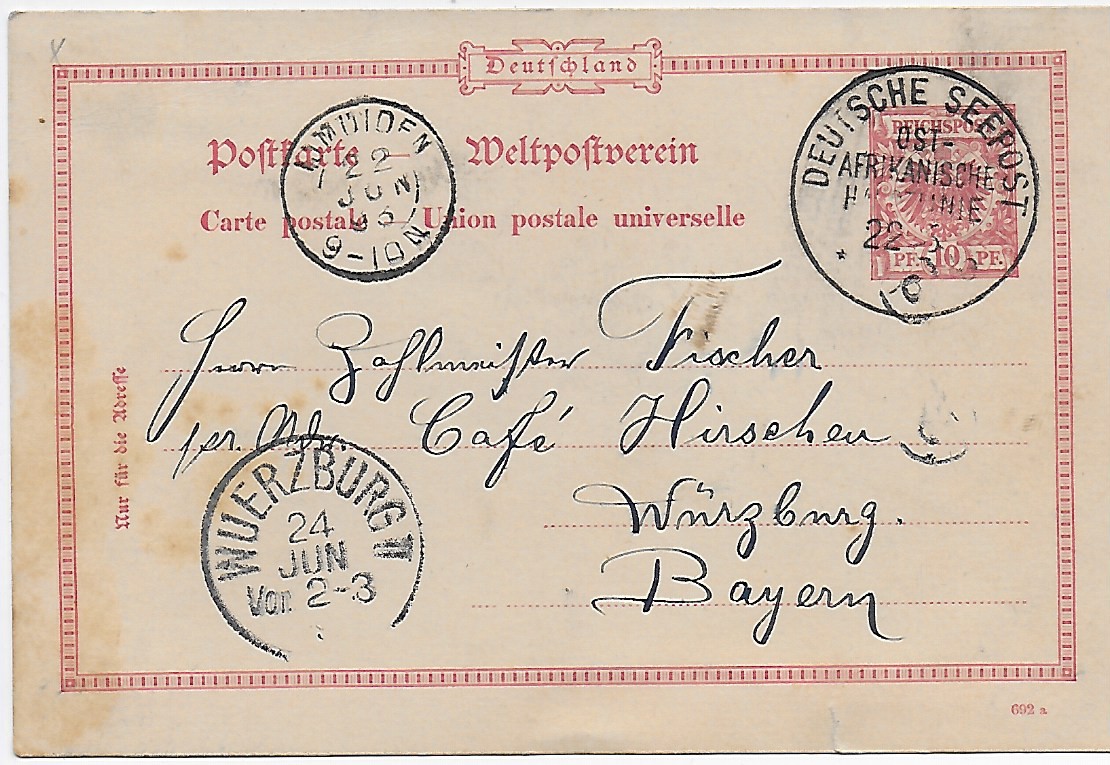 Deutschland
Postkarte — Weltpostverein
Carte postale — Union postale universelle
Nur für die Adresse
IJMUIDEN
22
JUN
9-10N
DEUTSCHE SEEPOST
OST-
AFRIKANISCHE
LINIE
22
REICHSPOST
PF. 10 PF.
Herrn Zahlmeister Fischer
per Adr. Café Hirschen
Würzburg.
Bayern
WUERZBURG
24
JUN
Vor 2-3
692 a